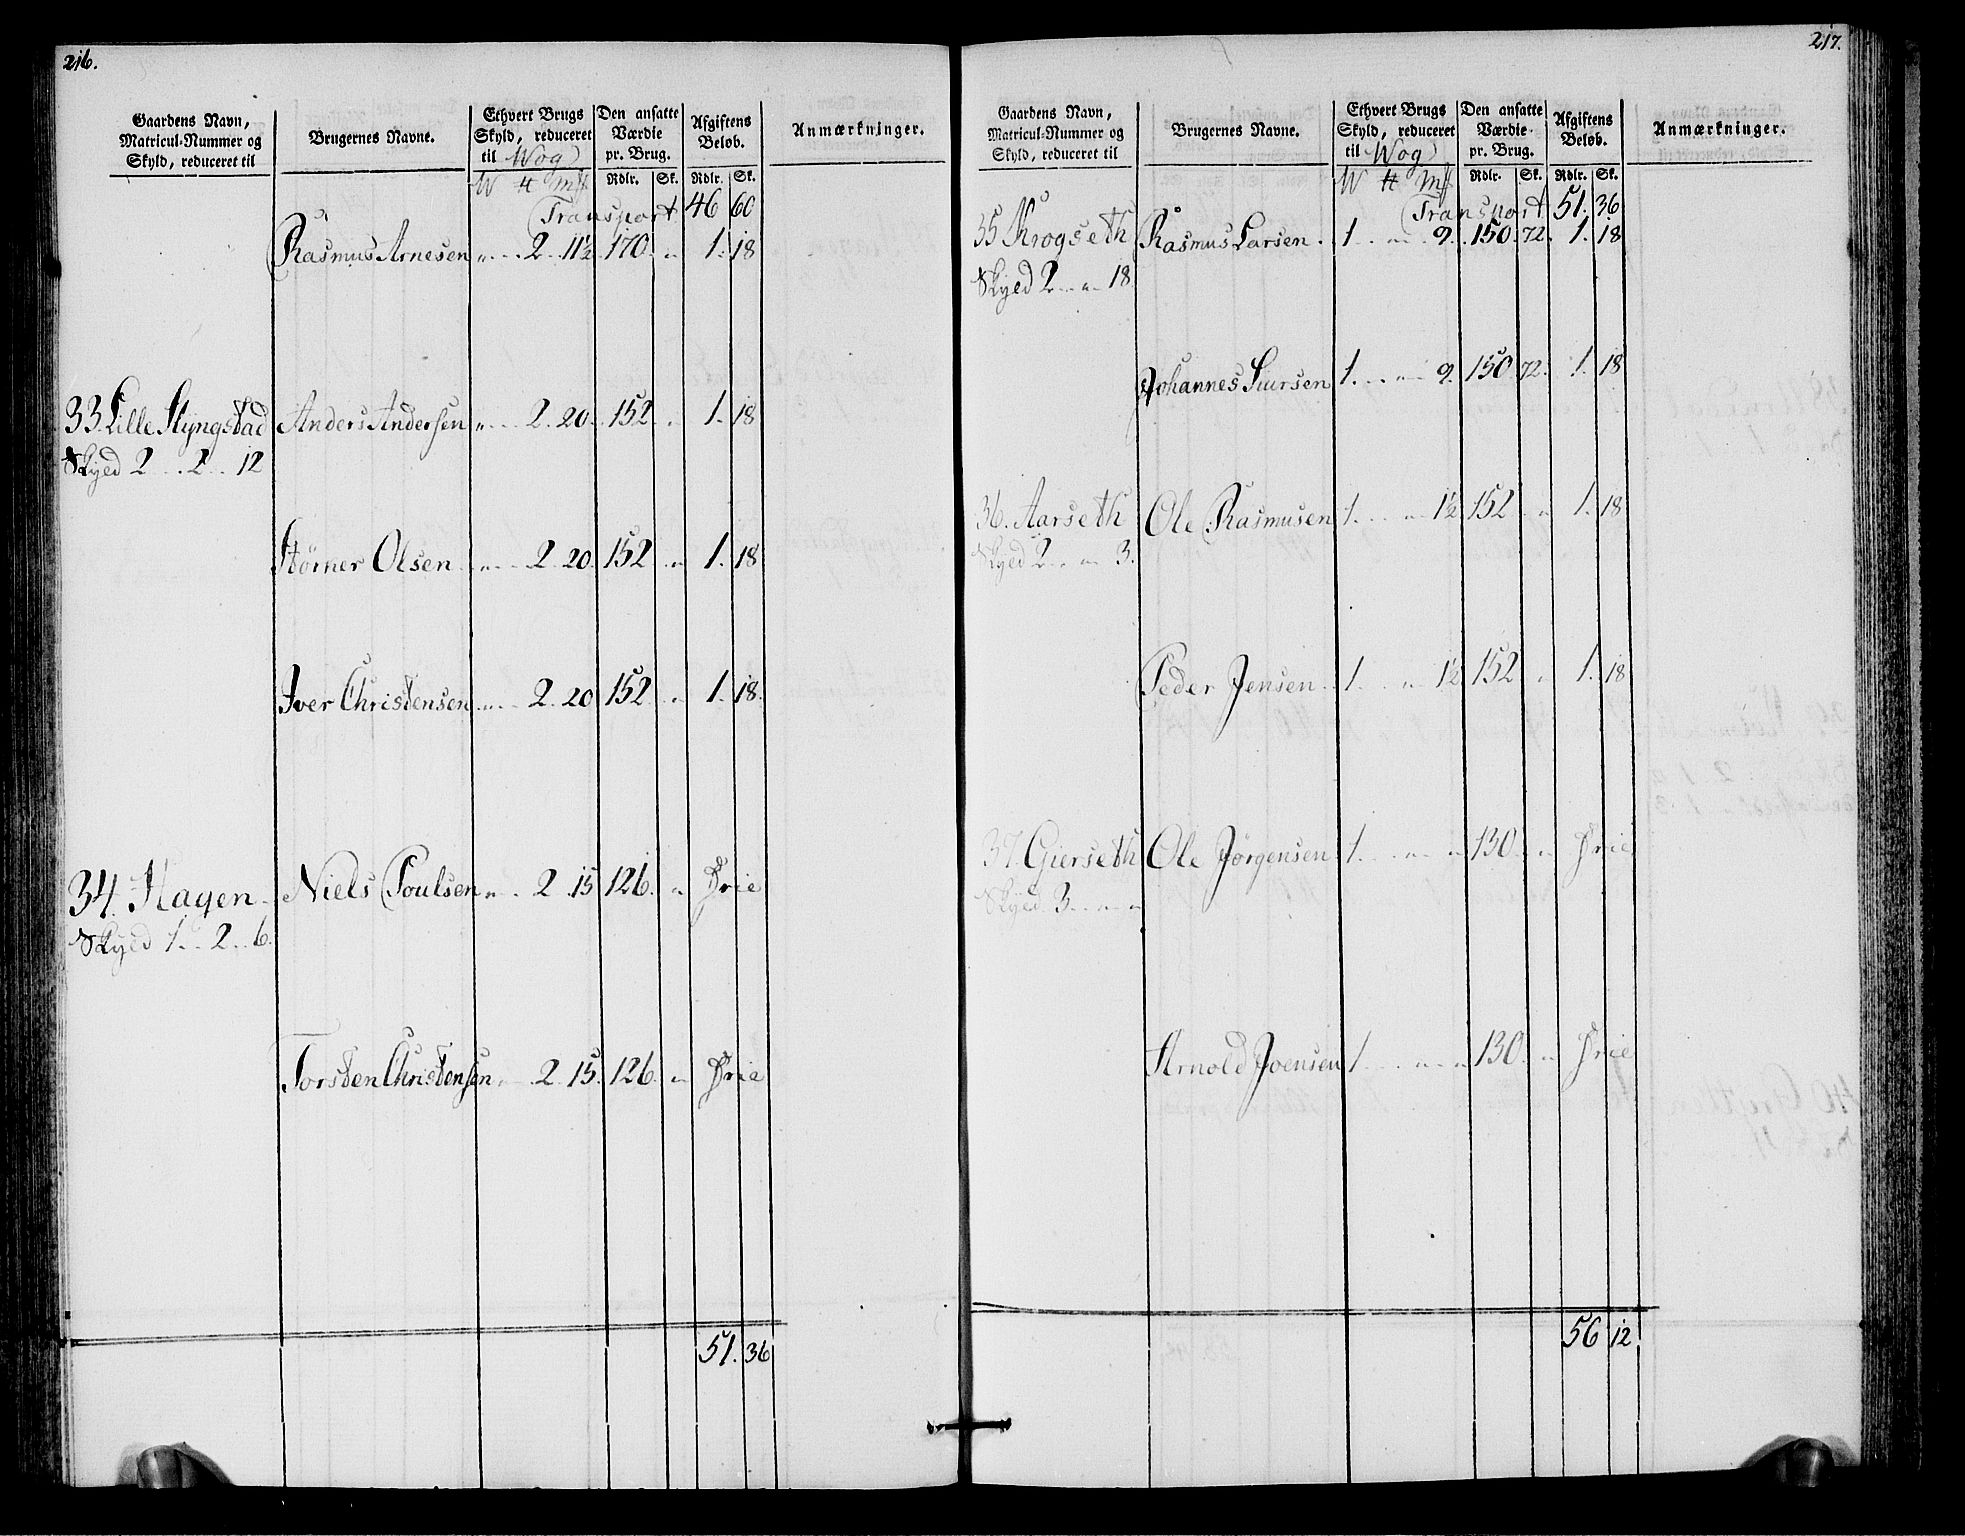 216.
Gaardens Navn, Matricul-Nummer og Skyld, reduceret til | Brugernes Navne. | Ethvert Brugs Skyld, reduceret til Wog | Den ansatte Værdie pr. Brug. | Afgiftens Beløb. | Anmærkninger.
W ℔ Mk | Rdlr. | Sk. | Rdlr. | Sk.
Transport 46 60
Rasmus Arnesen „ . . . 2 . 11½ 170 . „ 1. 18
33. Lille Slyngstad Anders Andersen „ . . . 2 . 20. 152 . „ 1. 18
Skyld 2 . . 2 . . 12
Störner Olsen „ . . . 2 . 20. 152 . „ 1. 18
Iver Christensen „ . . . 2 . 20 152 . „ 1. 18.
34. Hagen Niels Poulsen „ . . 2 . 15 126 . „ Frie
Skyld 1 . . 2 . . 6.
Torsten Christensen „ . . 2 . 15. 126 . „ Frie
51. 36
217.
Gaardens Navn, Matricul-Nummer og Skyld, reduceret til | Brugernes Navne. | Ethvert Brugs Skyld, reduceret til Wog | Den ansatte Værdie pr. Brug. | Afgiftens Beløb. | Anmærkninger.
W ℔ Mk | Rdlr. | Sk. | Rdlr. | Sk.
Transport 51. 36
35 Krogseth Rasmus Larsen . 1 . . . „ . 9. 150. 72. 1. 18
Skyld 2 . . „ . . 18.
Johannes Siursen 1 . . . „ . 9. 150 72. 1. 18
36. Aarseth Ole Rasmusen 1 . . . „ . 1½ 152 „ 1. 18
Skyld 2 . . „ . . 3.
Peder Jensen 1 . . . „ . 1½ 152 „ 1. 18
37. Gierseth Ole Jörgensen 1 . . . „ . „ 130 . „ Frie
Skyld 3 . . „ . . „
Arnold Joensen 1 . . . „ . „ 130. „ Frie
56 12